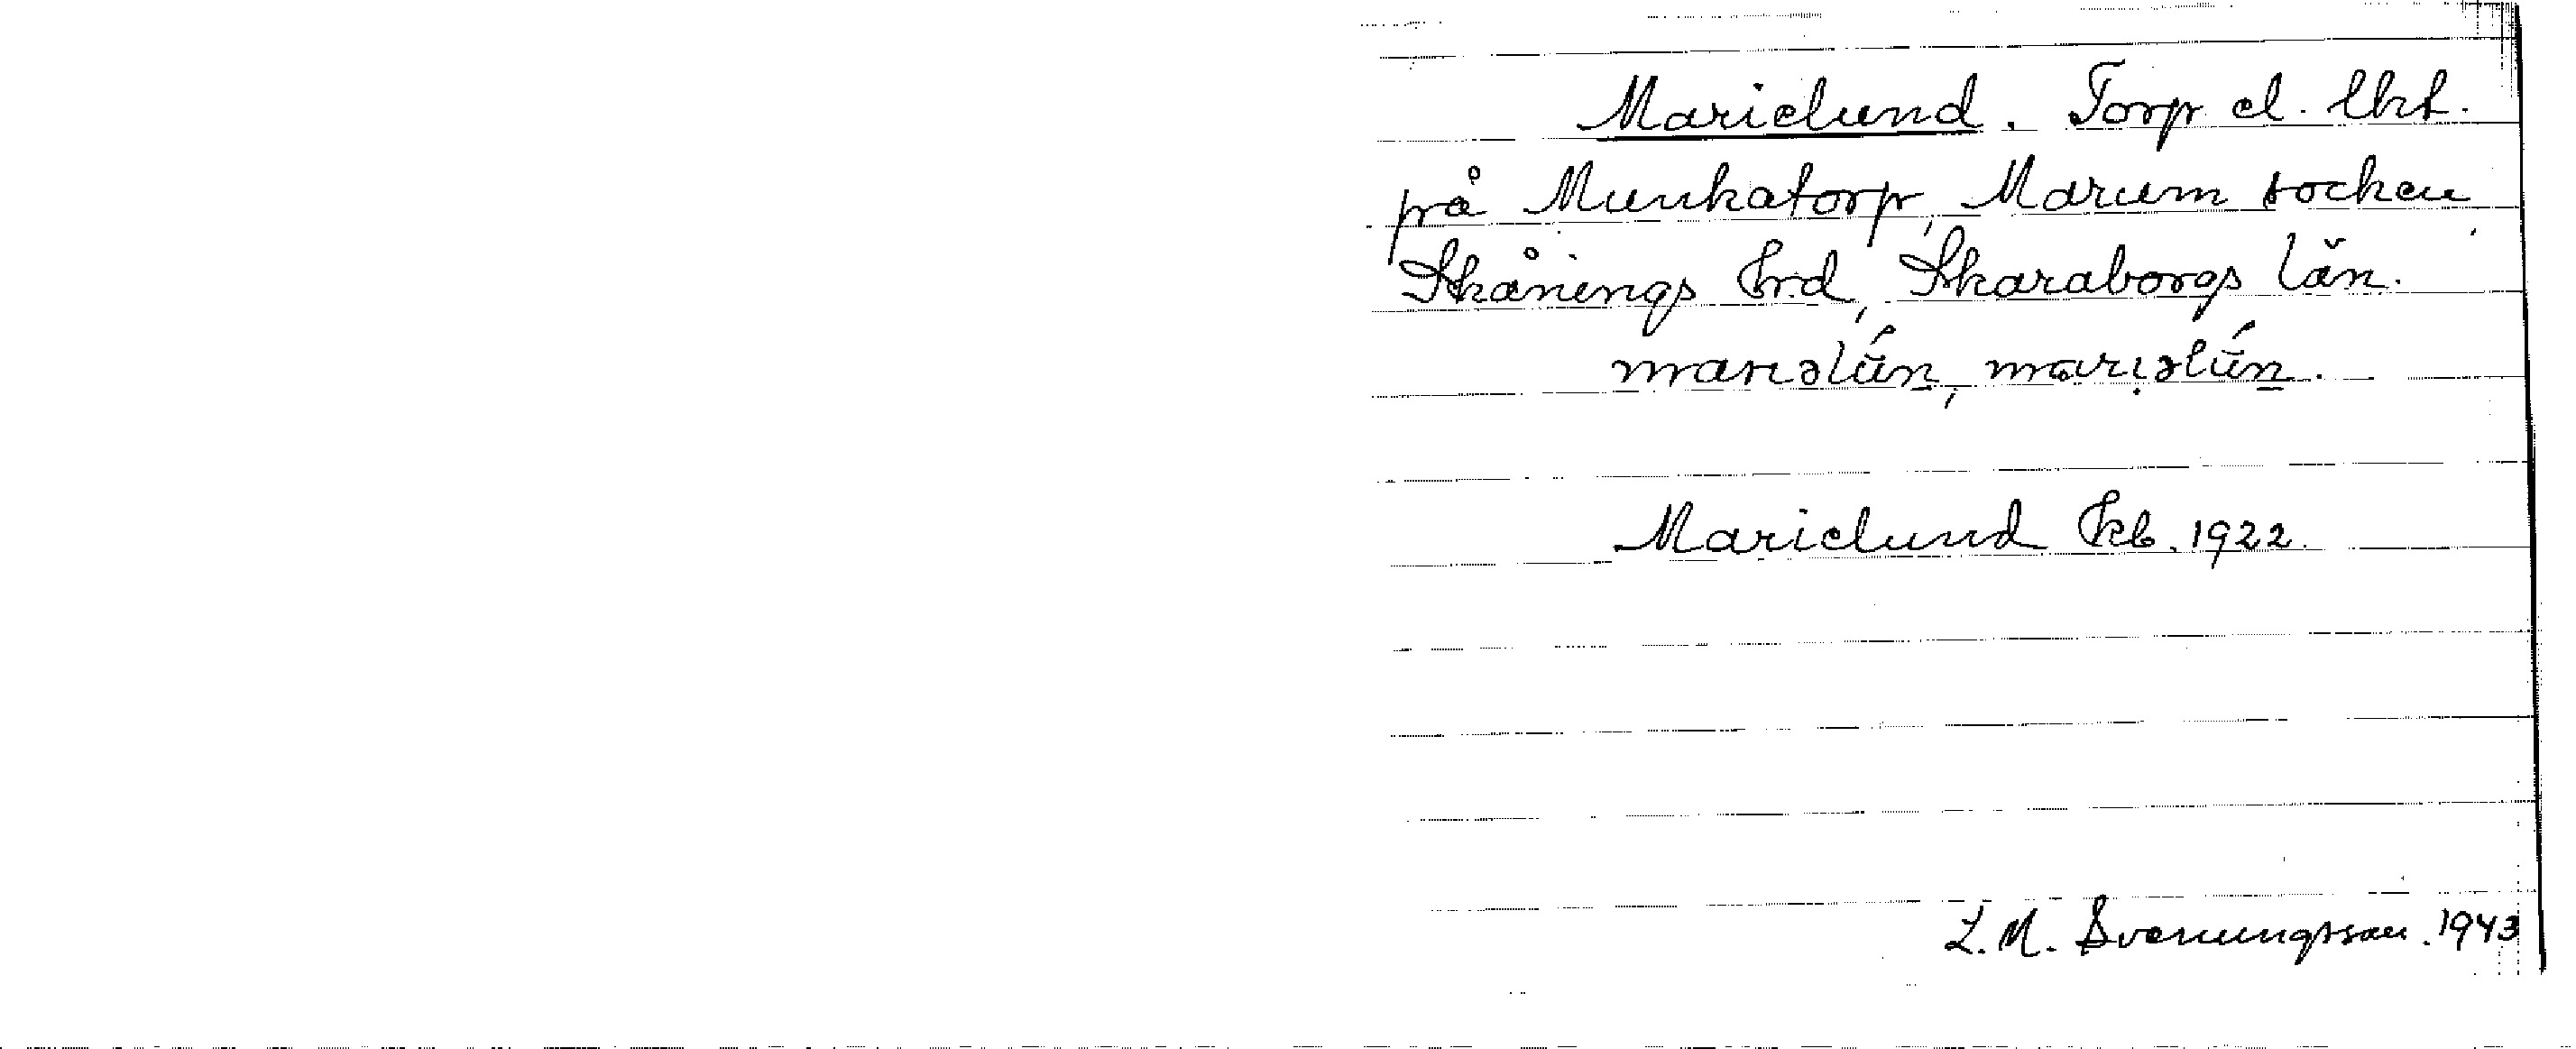 Marielund. Torp el. lht.
på Munkatorp, Marum socken,
Skånings hrd, Skaraborgs län.
mariəlún, mariəlún.
Marielund Kb. 1922.
L. M. Svenungsson. 1943